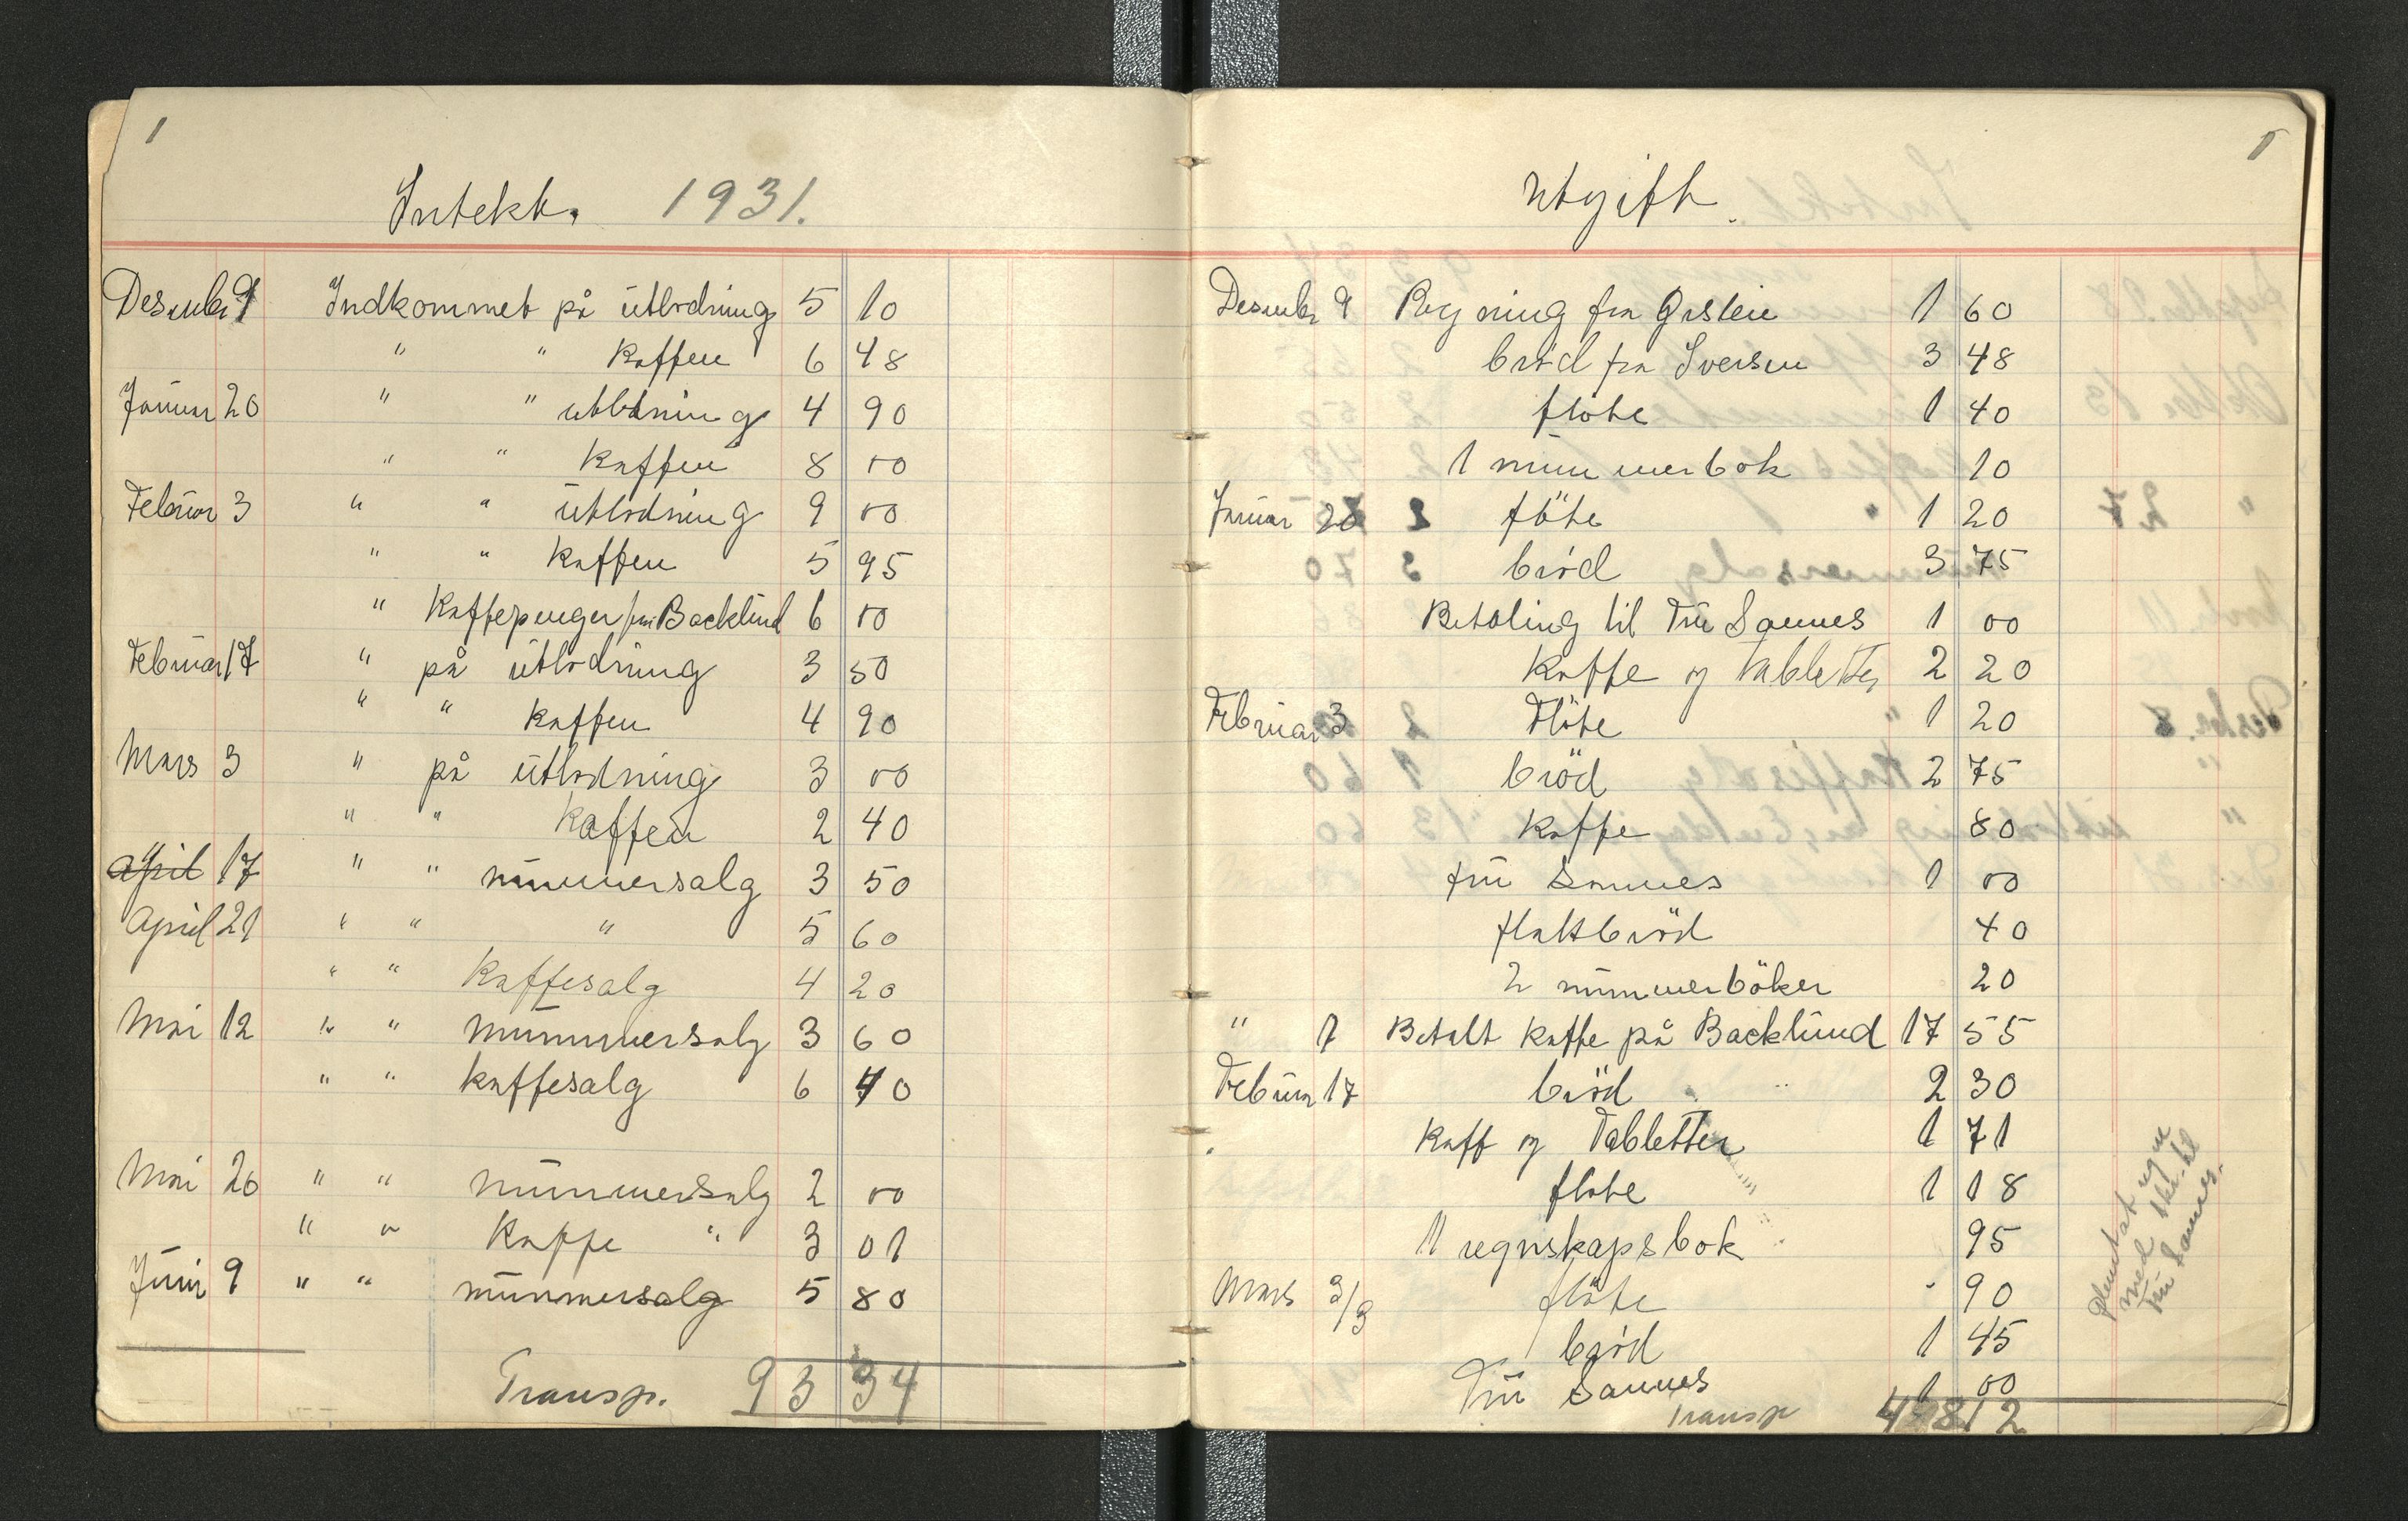 1
Intekt. 1931.
Desember 9 Indkommet på ütlodning 5 10
" " Kaffen 6 48
Januar 20 " " ütlodning 4 90
" " Kaffen 8 00
Febüar 3 " " ütlodning 9 00
" " Kaffen 5 95
" Kaffepenger fra Backlünd 6 00
Febrüar 17 " på ütlodning 3 50
" " Kaffen 4 90
Mars 3 " på ütlodning 3 00
" " Kaffen 2 40
april 17 " " nümmersalg 3 50
April 21 " " " 5 60
" " Kaffesalg 4 20
Mai 12 " " Nümmersalg 3 60
" " Kaffesalg 6 40
Mai 26 " " Nümmersalg 2 00
" " Kaffe " 3 01
Jüni 9 " " nümmersalg 5 80
Transp. 93 34
1
Utgift.
Desember 9 Regning fra Ørstein 1 60
bröd fra Iversen 3 48
flöte 1 40
1 nümmerbok 10
Janüar 20 flöte 1 20
bröd 3 75
Betaling til Frü Sannes 1 00
Kaffe og tabletter 2 20
Febrüar 3 Flöte 1 20
bröd 2 75
Kaffe 80
frü Sannes 1 00
flattbröd 40
2 nümmerböker 20
" 7 Betalt kaffe på Backlünd 17 55
Febüar 17 bröd 2 30
Kaff og Tabletter 1 71
flöte 1 18
1 regnskapsbok 95
Mars 3/3 flöte 90
bröd 1 45
Frü Sannes 1 00
Transp 48 12
med
frü Sannes.